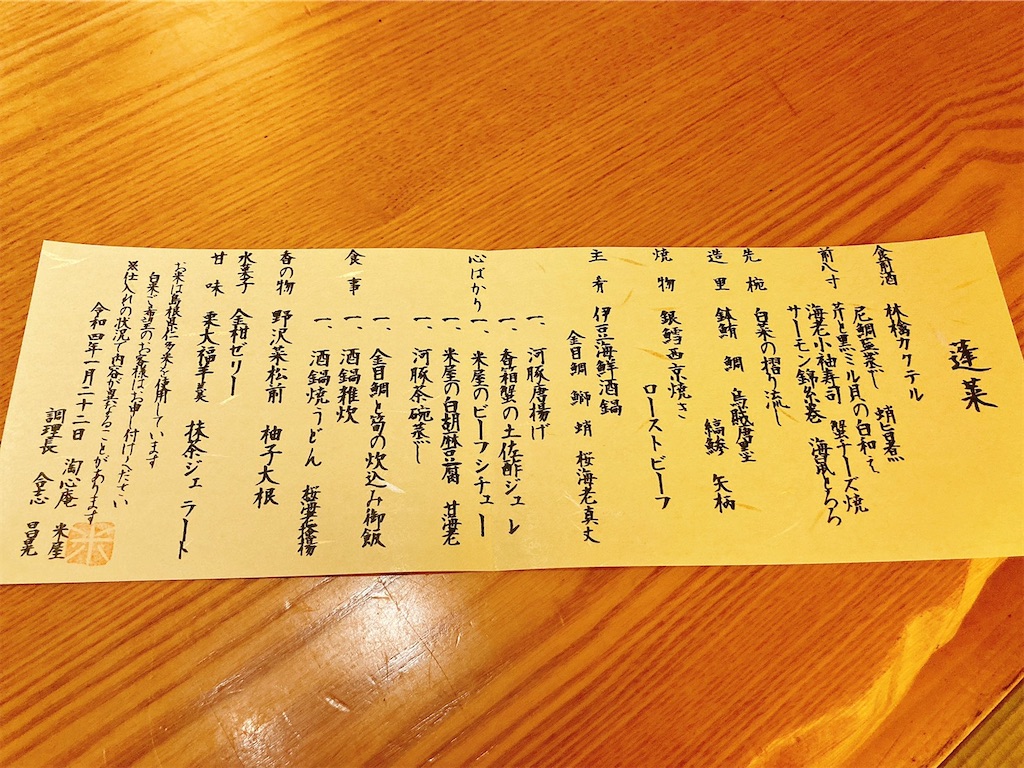 蓬莱
食前酒 林檎カクテル
前八寸 尼鯛蕪蒸し 蛸旨煮
芹と黒ミル貝の白和え
海老小袖寿司 蟹チーズ焼
サーモン錦糸巻 海鼠とろろ
先椀 白菜の摺り流し
造里 鉢鮪 鯛 烏賊唐墨 縞鯵 矢柄
焼物 銀鱈西京焼き
ローストビーフ
主肴 伊豆海鮮酒鍋
金目鯛 鰤 蛸 桜海老真丈
心ばかり
一、河豚唐揚げ
一、香箱蟹の土佐酢ジュレ
一、米屋のビーフシチュー
一、米屋の白胡麻豆腐 甘海老
一、河豚茶碗蒸し
食事
一、金目鯛と筍の炊込み御飯
一、酒鍋雑炊
一、酒鍋焼うどん 桜海老掻揚
香の物 野沢菜松前 柚子大根
水菓子 金柑ゼリー
甘味 栗大福 抹茶ジェラート
お米は島根県仁多米を使用しています
白米ご希望のお客様はお申し付けください
※仕入れの状況で内容が異なることがあります
令和四年一月二十二日
調理長 淘心庵 米屋
合志 昌晃
米